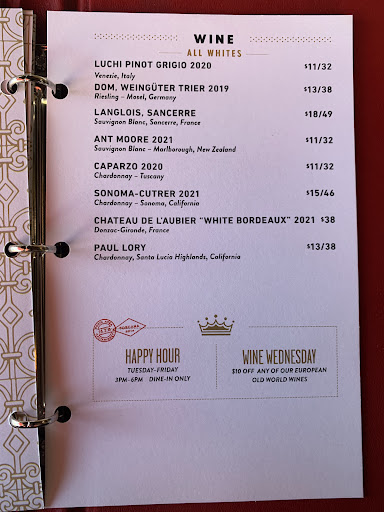 WINE
ALL WHITES
LUCHI PINOT GRIGIO 2020 $11/32
Venezie, Italy
DOM, WEINGÜTER TRIER 2019 $13/38
Riesling – Mosel, Germany
LANGLOIS, SANCERRE $18/49
Sauvignon Blanc, Sancerre, France
ANT MOORE 2021 $11/32
Sauvignon Blanc – Marlborough, New Zealand
CAPARZO 2020 $11/32
Chardonnay – Tuscany
SONOMA-CUTRER 2021 $15/46
Chardonnay – Sonoma, California
CHATEAU DE L'AUBIER "WHITE BORDEAUX" 2021 $38
Donzac-Gironde, France
PAUL LORY $13/38
Chardonnay, Santa Lucia Highlands, California
HAPPY HOUR
TUESDAY-FRIDAY
3PM–6PM DINE-IN ONLY
WINE WEDNESDAY
$10 OFF ANY OF OUR EUROPEAN
OLD WORLD WINES